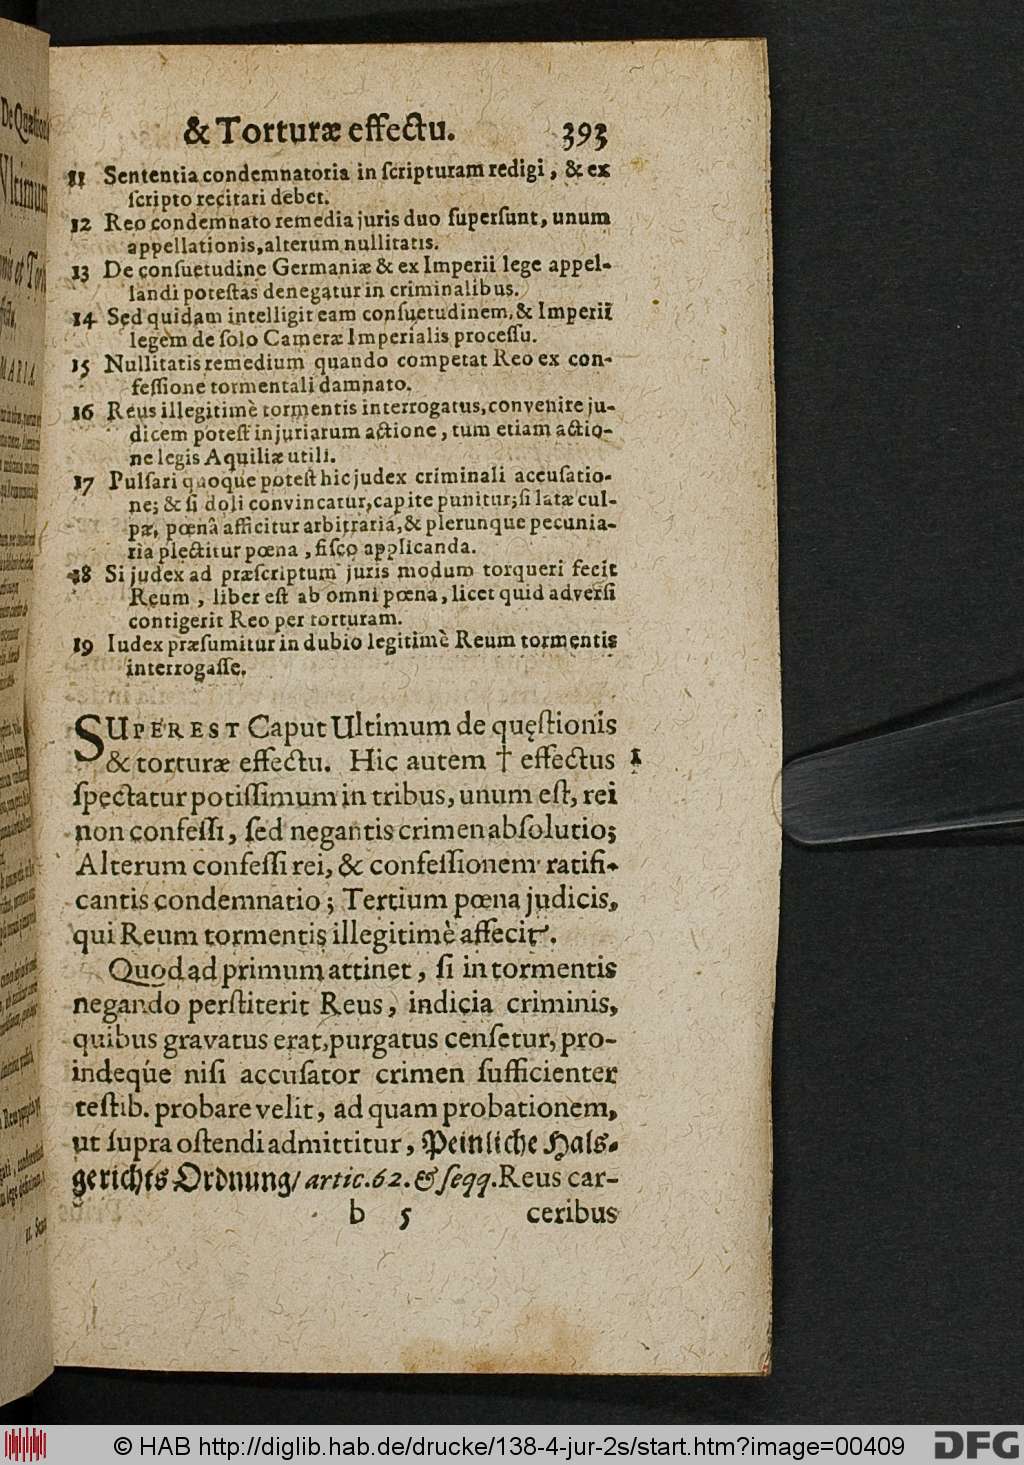 & Torturæ effectu. 393
11 Sententia condemnatoria in ſcripturam redigi, & ex
ſcripto recitari debet.
12 Reo condemnato remedia juris duo ſuperſunt, unum
appellationis, alterum nullitatis.
13 De conſuetudine Germaniæ & ex Imperii lege appel-
landi poteſtas denegatur in criminalibus.
14 Sed quidam intelligit eam conſuetudinem, & Imperii
legem de ſolo Cameræ Imperialis proceſſu.
15 Nullitatis remedium quando competat Reo ex con-
feſſione tormentali damnato.
16 Reus illegitimè tormentis interrogatus, convenire ju-
dicem poteſt injuriarum actione, tum etiam actio-
ne legis Aquiliæ utili.
17 Pulſari quoque poteſt hic judex criminali accuſatio-
ne; & ſi doli convincatur, capite punitur; ſi latæ cul-
pæ, pœnâ afficitur arbitraria, & plerunque pecunia-
ria plectitur pœna, fiſco applicanda.
18 Si judex ad præſcriptum juris modum torqueri fecit
Reum, liber eſt ab omni pœna, licet quid adverſi
contigerit Reo per torturam.
19 Iudex præſumitur in dubio legitimè Reum tormentis
interrogaſſe.
SUPEREST Caput Ultimum de quęſtionis
& torturæ effectu. Hic autem † effectus 1
ſpectatur potiſſimum in tribus, unum eſt, rei
non confeſſi, ſed negantis crimen abſolutio;
Alterum confeſſi rei, & confeſſionem ratifi-
cantis condemnatio; Tertium pœna judicis,
qui Reum tormentis illegitimè affecit.
Quod ad primum attinet, ſi in tormentis
negando perſtiterit Reus, indicia criminis,
quibus gravatus erat, purgatus cenſetur, pro-
indeqúe niſi accuſator crimen ſufficienter
teſtib. probare velit, ad quam probationem,
ut ſupra oſtendi admittitur, Peinliche Hals-
gerichts Ordnung/ artic. 62. & ſeqq. Reus car-
b 5 ceribus
© HAB http://diglib.hab.de/drucke/138-4-jur-2s/start.htm?image=00409
DFG